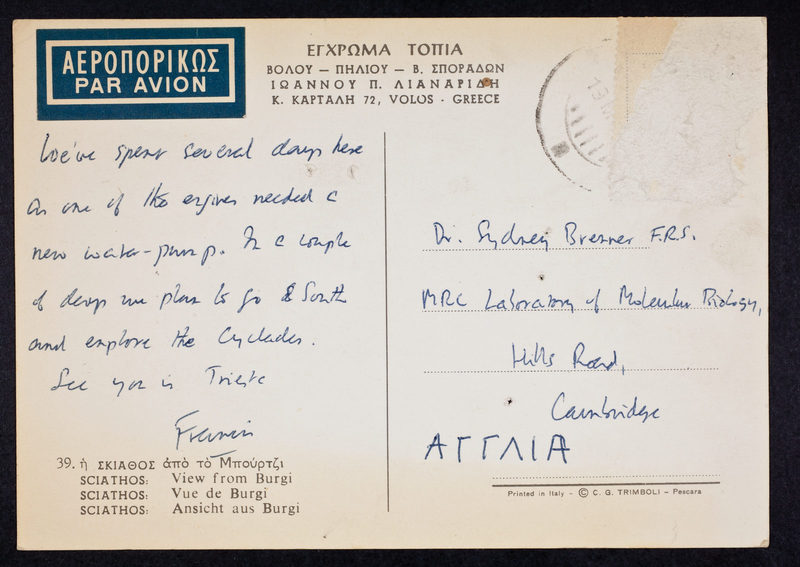 ΑΕΡΟΠΟΡΙΚΩΣ
PAR AVION
ΕΓΧΡΩΜΑ ΤΟΠΙΑ
ΒΟΛΟΥ — ΠΗΛΙΟΥ — Β. ΣΠΟΡΑΔΩΝ
ΙΩΑΝΝΟΥ Π. ΛΙΑΝΑΡΙΔΗ
Κ. ΚΑΡΤΑΛΗ 72, VOLOS - GREECE
We've spent several days here
as one of the engines needed a
new water-pump. In a couple
of days we plan to go South
and explore the Cyclades.
See you in Trieste
Francis
39. ἡ ΣΚΙΑΘΟΣ ἀπὸ τὸ Μπούρτζι
SCIATHOS: View from Burgi
SCIATHOS: Vue de Burgi
SCIATHOS: Ansicht aus Burgi
Dr. Sydney Brenner F.R.S.
MRC Laboratory of Molecular Biology,
Hills Road,
Cambridge
ΑΓΓΛΙΑ
Printed in Italy - © C. G. TRIMBOLI - Pescara